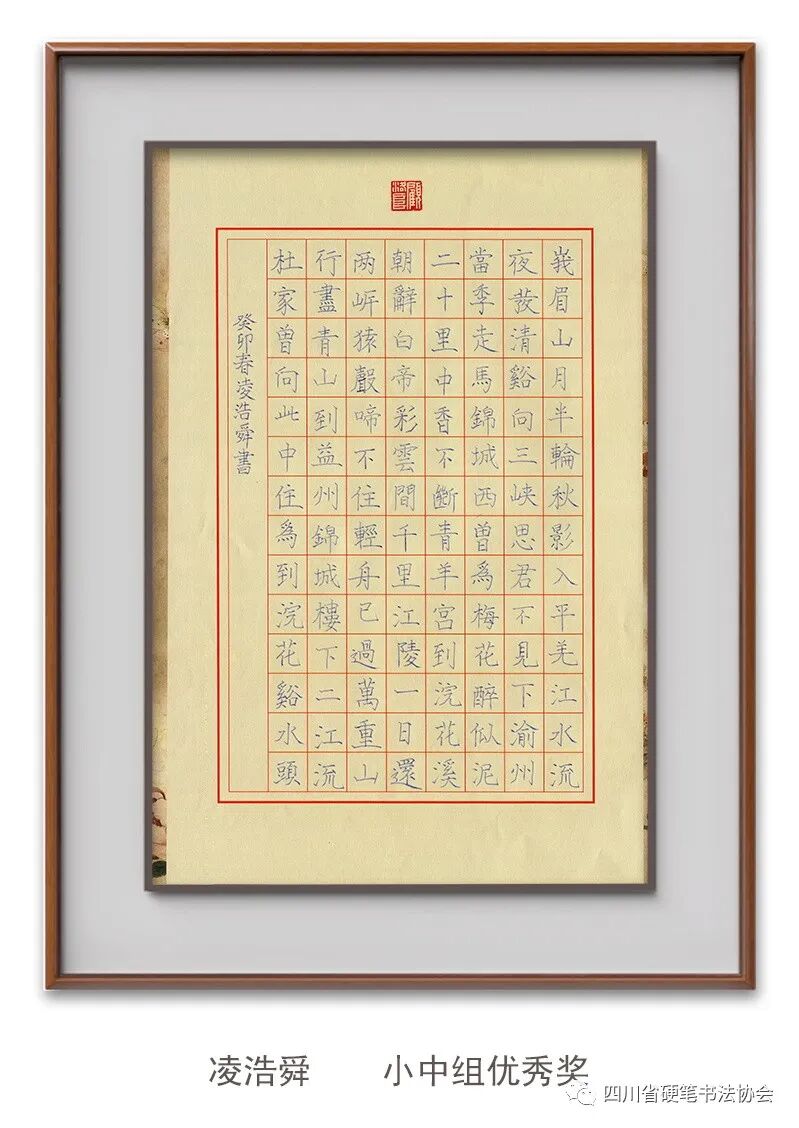 峩眉山月半輪秋影入平羌江水流
夜發清谿向三峡思君不見下渝州
當季走馬錦城西曽為梅花醉似泥
二十里中香不斷青羊宮到浣花溪
朝辭白帝彩雲間千里江陵一日還
两岍猿聲啼不住輕舟已過萬重山
行盡青山到益州錦城樓下二江流
杜家曽向此中住為到浣花谿水頭
癸卯春凌浩舜書
凌浩舜 小中组优秀奖
四川省硬笔书法协会